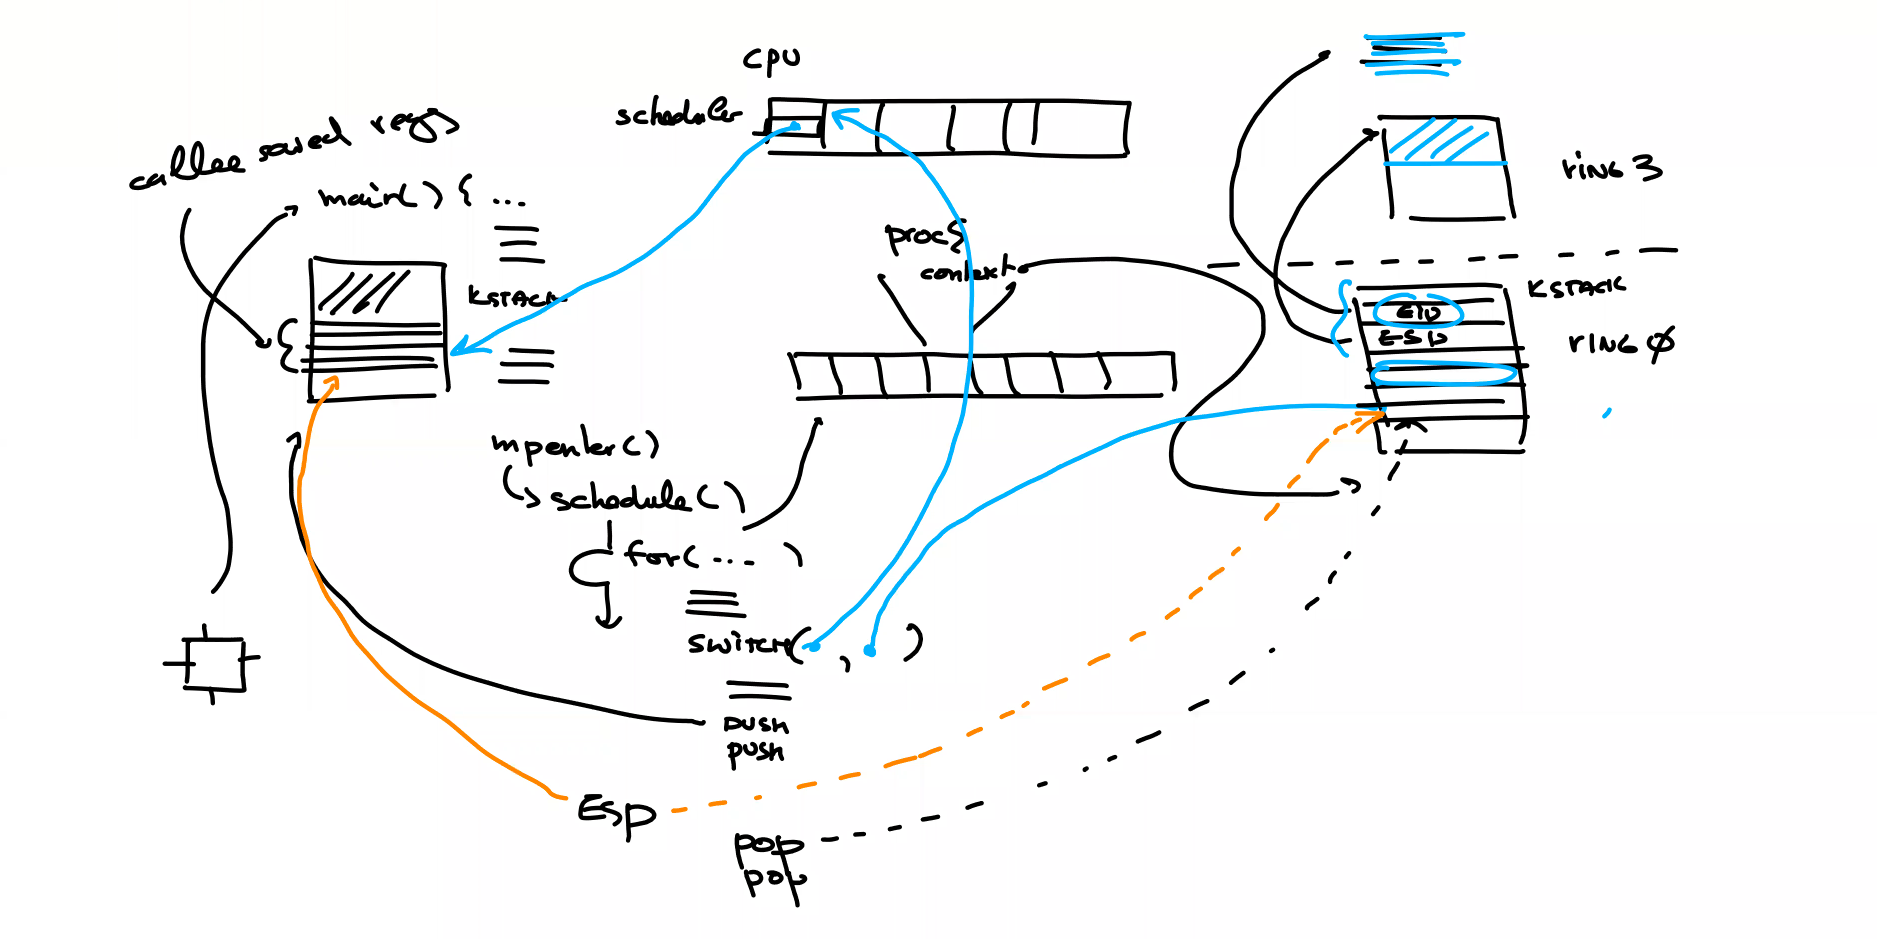 CPU
scheduler
callee saved regs
main() { ...
KSTACK
proc{
context
ring 3
KSTACK
EIP
ESP
RING Ø
mpenter()
schedule()
for( .... )
SWITCH( , )
PUSH
PUSH
Esp
pop
pop